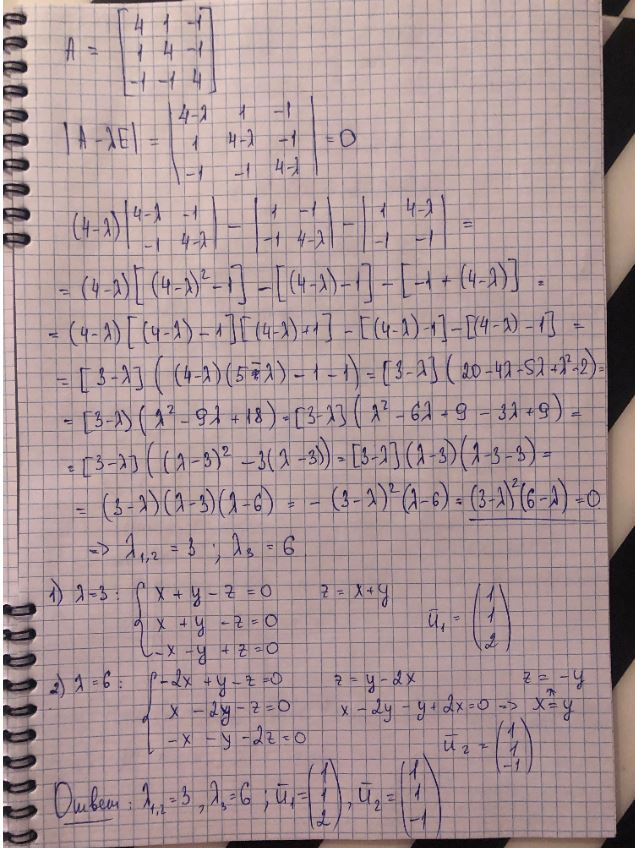 A = [4 1 -1
1 4 -1
-1 -1 4]
|A-λE| = |4-λ 1 -1
1 4-λ -1
-1 -1 4-λ| = 0
(4-λ) |4-λ -1; -1 4-λ| - |1 -1; -1 4-λ| - |1 4-λ; -1 -1| =
= (4-λ)[(4-λ)²-1] - [(4-λ)-1] - [-1+(4-λ)] =
= (4-λ)[(4-λ)-1][(4-λ)+1] - [(4-λ)-1] - [(4-λ)-1] =
= [3-λ]((4-λ)(5-λ)-1-1) = [3-λ](20-4λ-5λ+λ²-2) =
= [3-λ)(λ²-9λ+18) = [3-λ](λ²-6λ+9-3λ+9) =
= [3-λ]((λ-3)²-3(λ-3)) = [3-λ](λ-3)(λ-3-3) =
= (3-λ)(λ-3)(λ-6) = -(3-λ)²(λ-6) = (3-λ)²(6-λ) = 0
=> λ₁,₂ = 3 ; λ₃ = 6
1) λ=3: { x + y - z = 0 z = x+y
x + y - z = 0 ū₁ = (1 1 2)
-x - y + z = 0
2) λ=6: { -2x + y - z = 0 z = y-2x z = -y
x - 2y - z = 0 x-2y-y+2x=0 -> x = y
-x - y - 2z = 0 ū₂ = (1 1 -1)
Ответ: λ₁,₂=3, λ₃=6; ū₁=(1 1 2), ū₂=(1 1 -1)